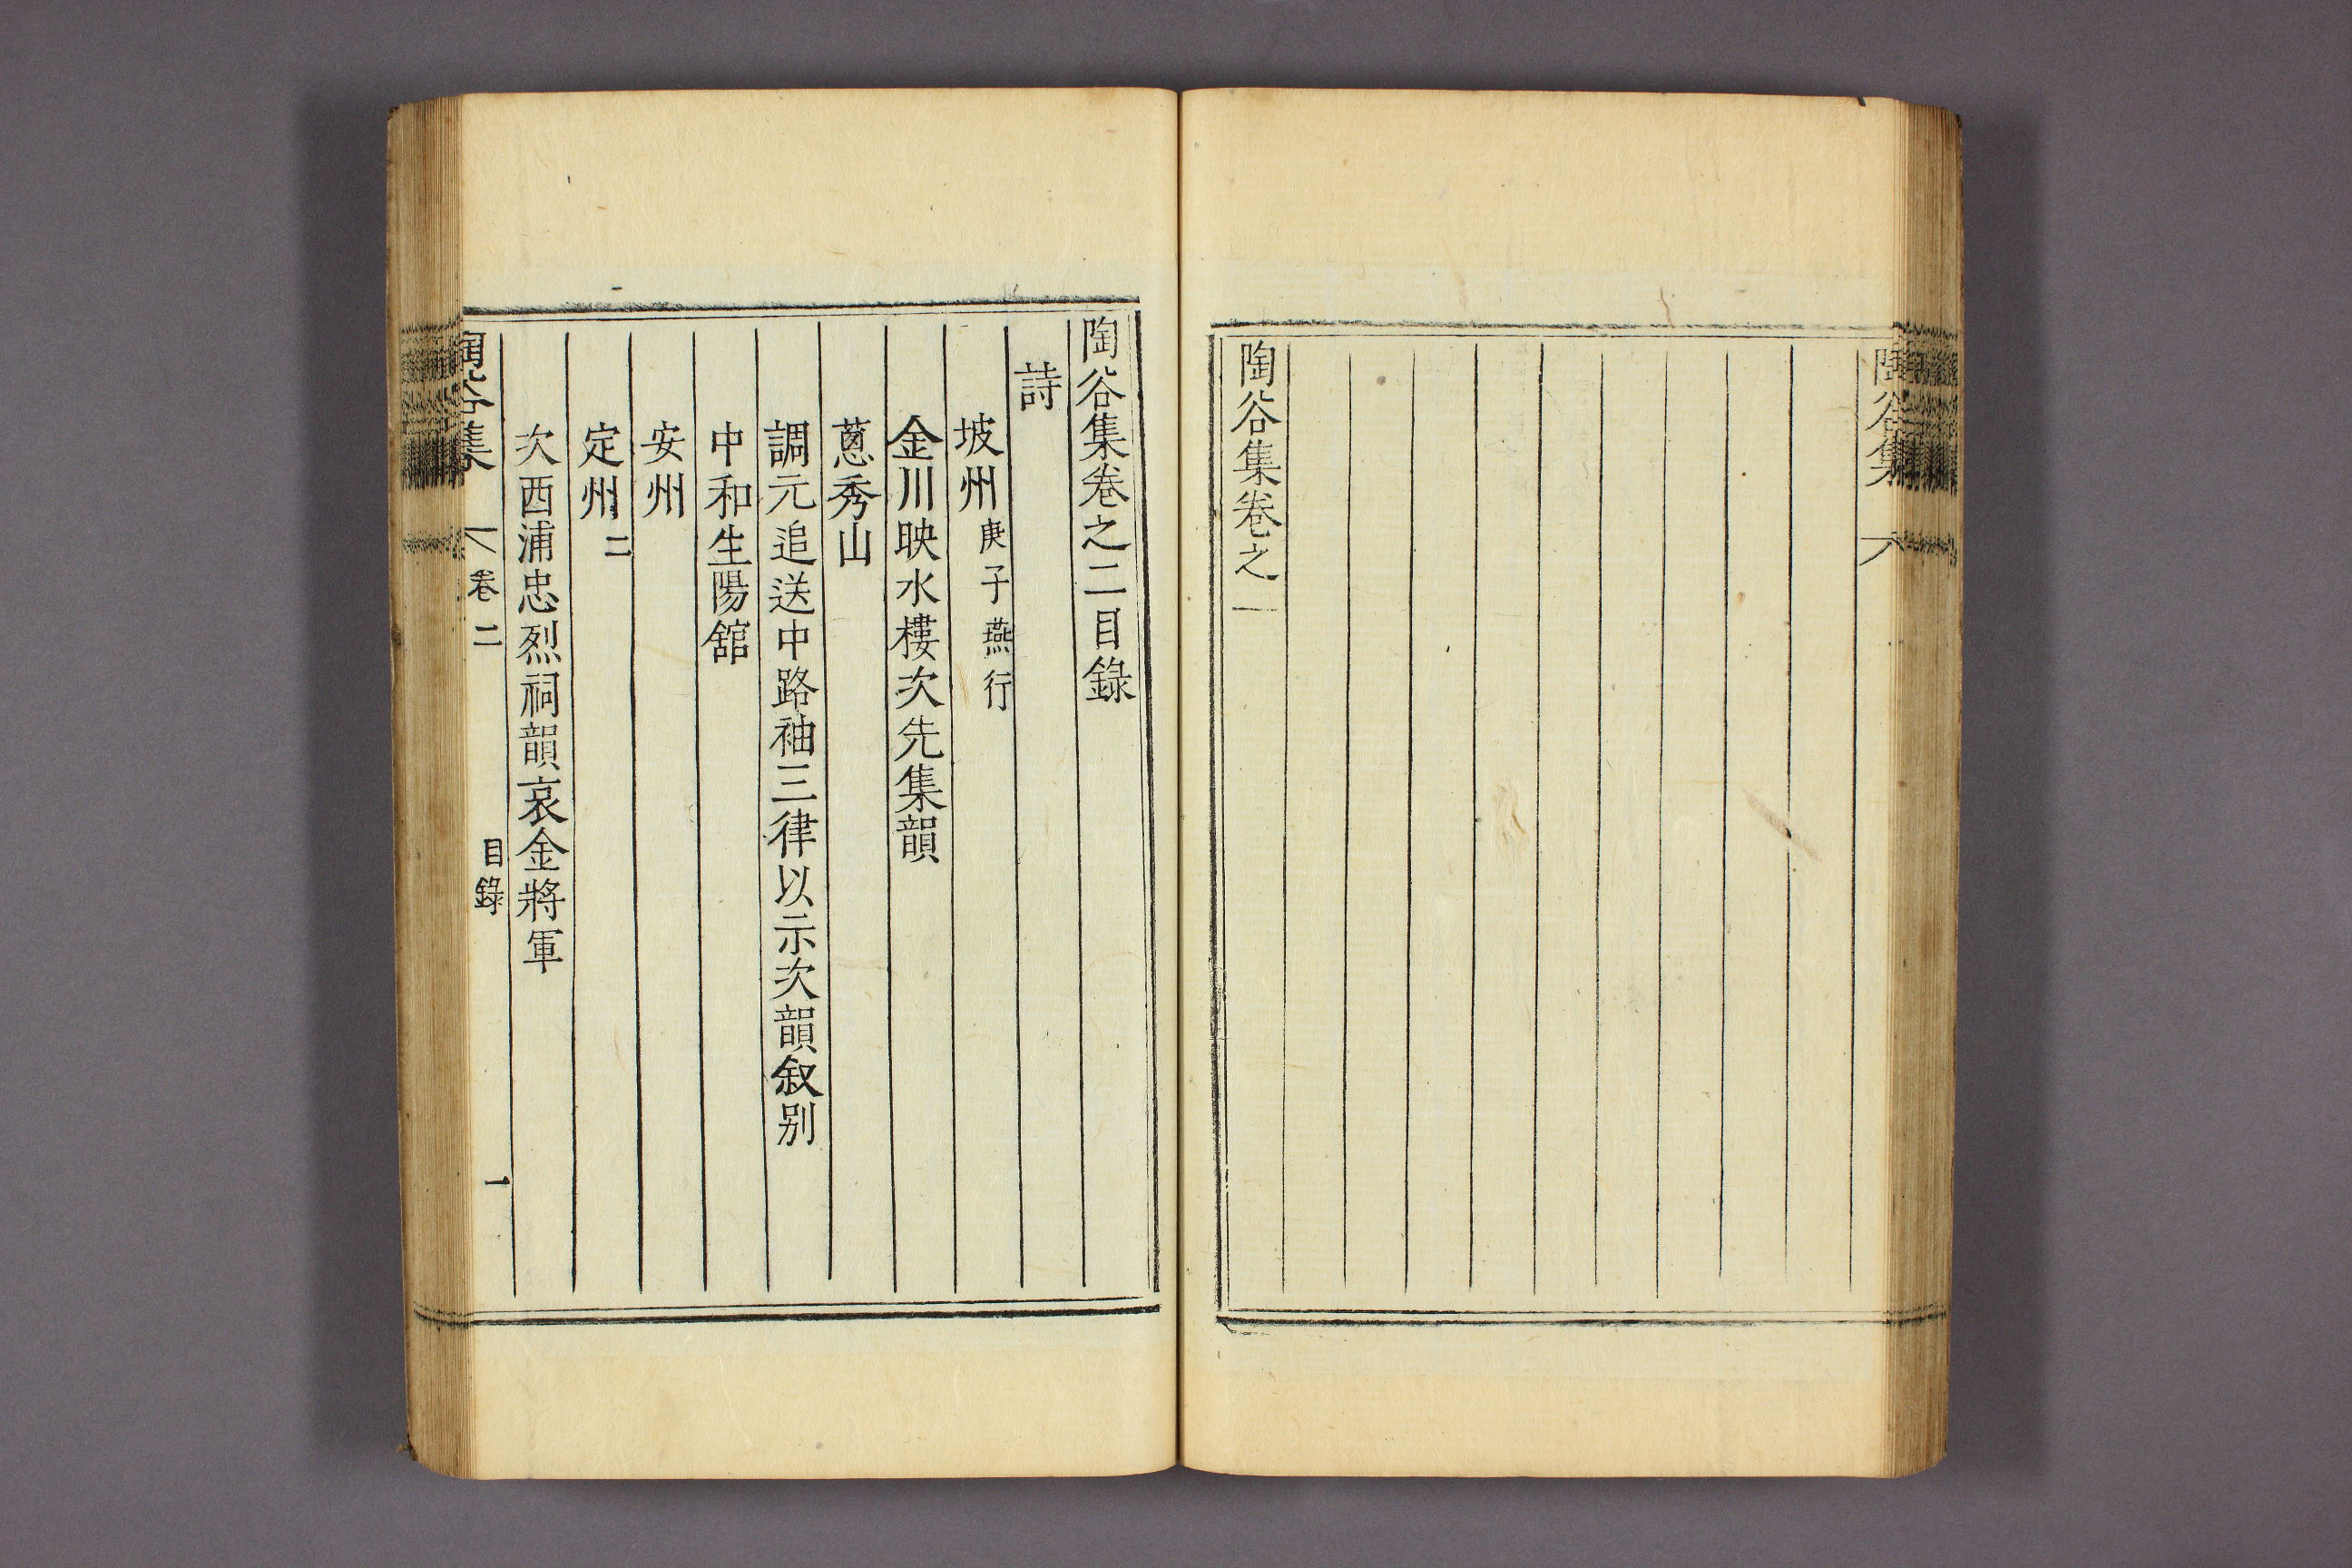 陶谷集
陶谷集卷之一
陶谷集卷之二目錄
詩
坡州庚子燕行
金川映水樓次先集韻
蔥秀山
調元追送中路袖三律以示次韻叙别
中和生陽舘
安州
定州二
次西浦忠烈祠韻哀金將軍
陶谷集 卷二 目錄 一